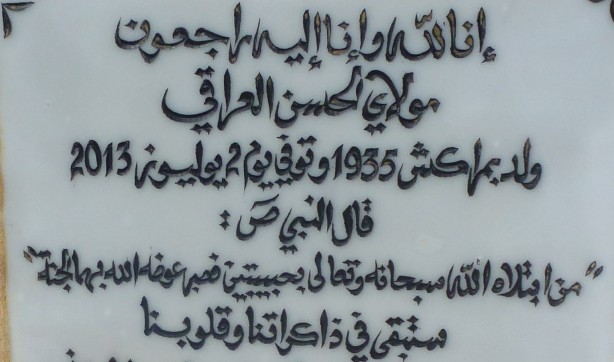 إنا لله وإنا إليه راجعون
مولاي الحسن العراقي
ولد بمراكش 1935 وتوفي يوم 2 يوليوز 2013
قال النبي صَ :
"من ابتلاه الله سبحانه وتعالى بحبيبتين فصبر عوضه الله بهما الجنة"
ستبقى في ذاكراتنا وقلوبنا